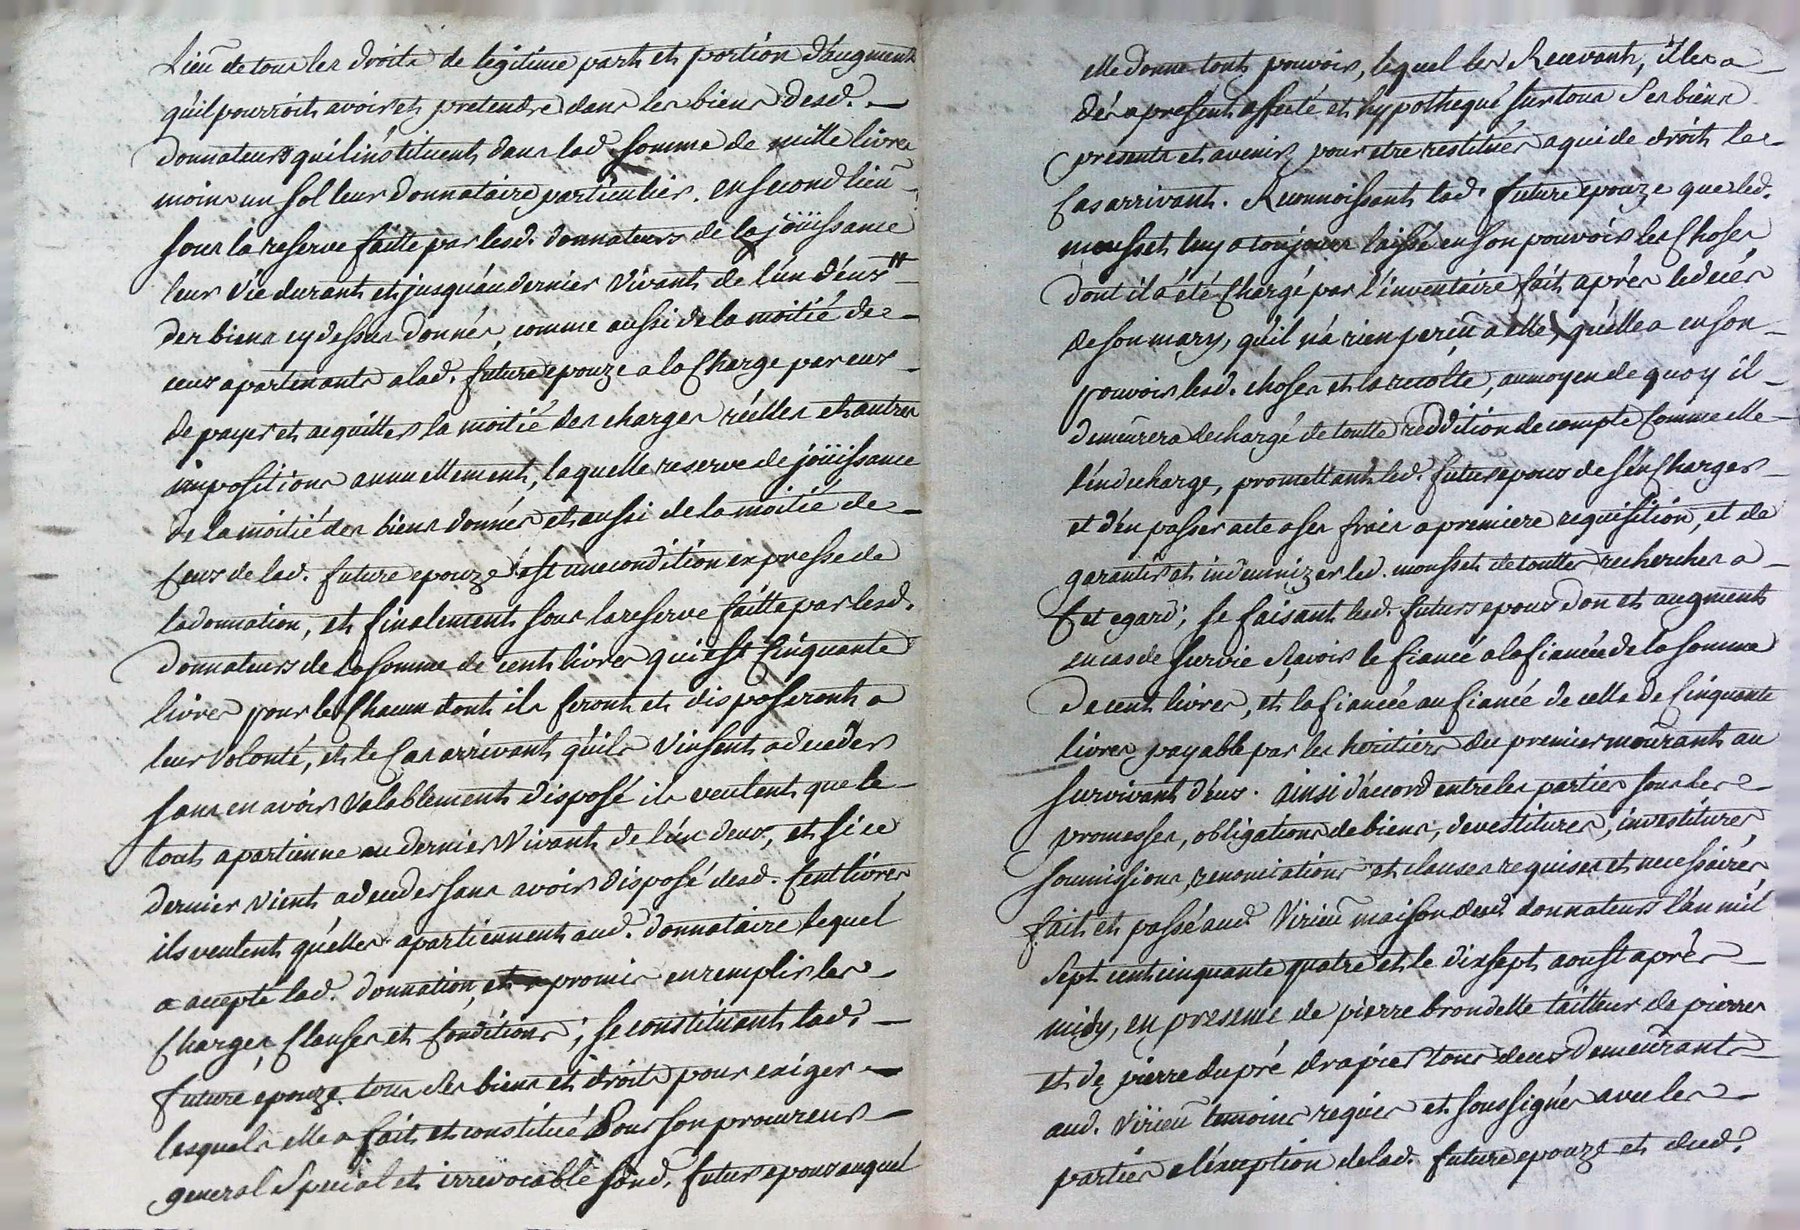 Lieu de tous les droits de legitime part et portion d'augment
qu'il pourroit avoir et pretendre dans les biens desd.
donnateurs qu'il instituent dans lad. somme de mille livres
moins un sol leur donnataire particulier. en second lieu
sous la reserve faitte par lesd. donnateurs de la joüissance
leur vie durant et jusqu'au dernier vivant de l'un d'eux
des biens cy dessus donnés, comme aussi de la moitié de
ceux apartenants a lad. future epouze a la charge par eux
de payer et acquitter la moitié des charges réelles et autres
impositions annuellement, laquelle reserve de joüissance
de la moitié des biens donnés et aussi de la moitié de
ceux de lad. future epouze est une condition expresse de
la donnation, et finalement sous la reserve faitte par lesd.
donnateurs de la somme de cent livres qui est cinquante
livres pour le chacun dont ils feront et disposeront a
leur volonté, et le cas arrivant qu'ils vinsent a deceder
sans en avoir valablement disposé ils veulent que le
tout apartienne au dernier vivant de l'un deux, et si ce
dernier vient a deceder sans avoir disposé desd. cent livres
ils veulent qu'elles apartiennent aud. donnataire lequel
a accepté lad. donnation, et a promis en remplir les
charges, clauses et conditions; se constituant lad.
future epouze tous ses biens et droits pour exiger
lesquels elle a fait et constitué pour son procureur
general special et irrevocable sond. futur epoux auquel
elle donne tout pouvoir, lequel les recevant, il les a
dés a present affecté et hypothequé sur tous ses biens
presents et avenir, pour etre restitués a qui de droit le
cas arrivant. Reconnoissant lad. future epouze que led.
mousset luy a toujours laissé en son pouvoir les choses
dont il a été chargé par l'inventaire fait aprés le decés
de son mary, qu'il n'a rien perçeu a elle, qu'elle a en son
pouvoir lesd. choses et la recolte, au moyen de quoy il
demeurera dechargé de toutte reddition de compte comme elle
l'en decharge, promettant led. futur epoux de s'en charger
et d'en passer acte a ses frais a premiere requisition, et de
garantir et indemnizer led. mousset de touttes recherches a
cet egard; se faisant lesd. futurs epoux don et augment
en cas de survie sçavoir le fiancé a la fiancée de la somme
de cent livres, et la fiancée au fiancé de celle de cinquante
livres payable par les heritiers du premier mourant au
survivant d'eux. ainsi d'accord entre les parties sous les
promesses, obligations de biens, devestitures, investitures
soumissions, renonciations et clauses requises et necessaires
fait et passé aud. Virieu maison desd. donnateurs l'an mil
sept cent cinquante quatre et le dix sept aoust aprés
midy, en presence de pierre brondelle tailleur de pierres
et de pierre dupré drapier tous deux demeurants
aud. Virieu temoins requis et soussignés avec les
parties a l'exception de lad. future epouze et dud.